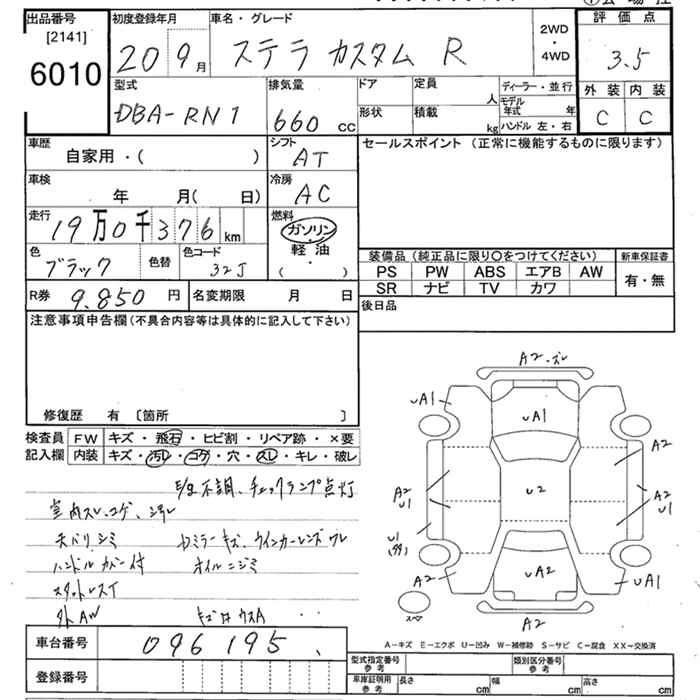 出品番号
[2141]
6010
初度登録年月
20 9月
車名・グレード
ステラ カスタム R
2WD
・
4WD
評価点
3.5
外装 内装
C C
型式
DBA-RN1
排気量
660 cc
ドア
定員
人
形状
積載
kg
ディーラー・並行
モデル年式 年
ハンドル 左・右
車歴
自家用・( )
シフト
AT
車検
年 月( 日)
冷房
AC
走行
19万0千376km
燃料
ガソリン
・
軽油
・
( )
色
ブラック
色替
色コード
32J
R券 9.850 円
名変期限 月 日
セールスポイント(正常に機能するものに限ります)
装備品(純正品に限り〇をつけてください)
PS PW ABS エアB AW
SR ナビ TV カワ
新車保証書
有・無
後日品
注意事項申告欄(不具合内容等は具体的に記入して下さい)
修復歴 有 〔箇所 〕
検査員 FW キズ・飛石・ヒビ割・リペア跡・×要
記入欄 内装 キズ・汚レ・コゲ・穴・スレ・キレ・破レ
E/g不調、チェックランプ点灯
室内スレ、コゲ、汚レ
天バリ、シミ
ハンドルカバー付
オイルニジミ
外AW
A2・ズレ
UA1
UA1
A2
A2
U1
U2
A2
U1
U1
A2
UA2
UA1
A2
スペア
A-キズ E-エクボ U-凹み W-補修跡 S-サビ C-腐食 XX-交換済
車台番号 096195
登録番号
型式指定番号 参考
類別区分番号 参考
車庫証明用 参考
長さ cm
幅 cm
高さ cm